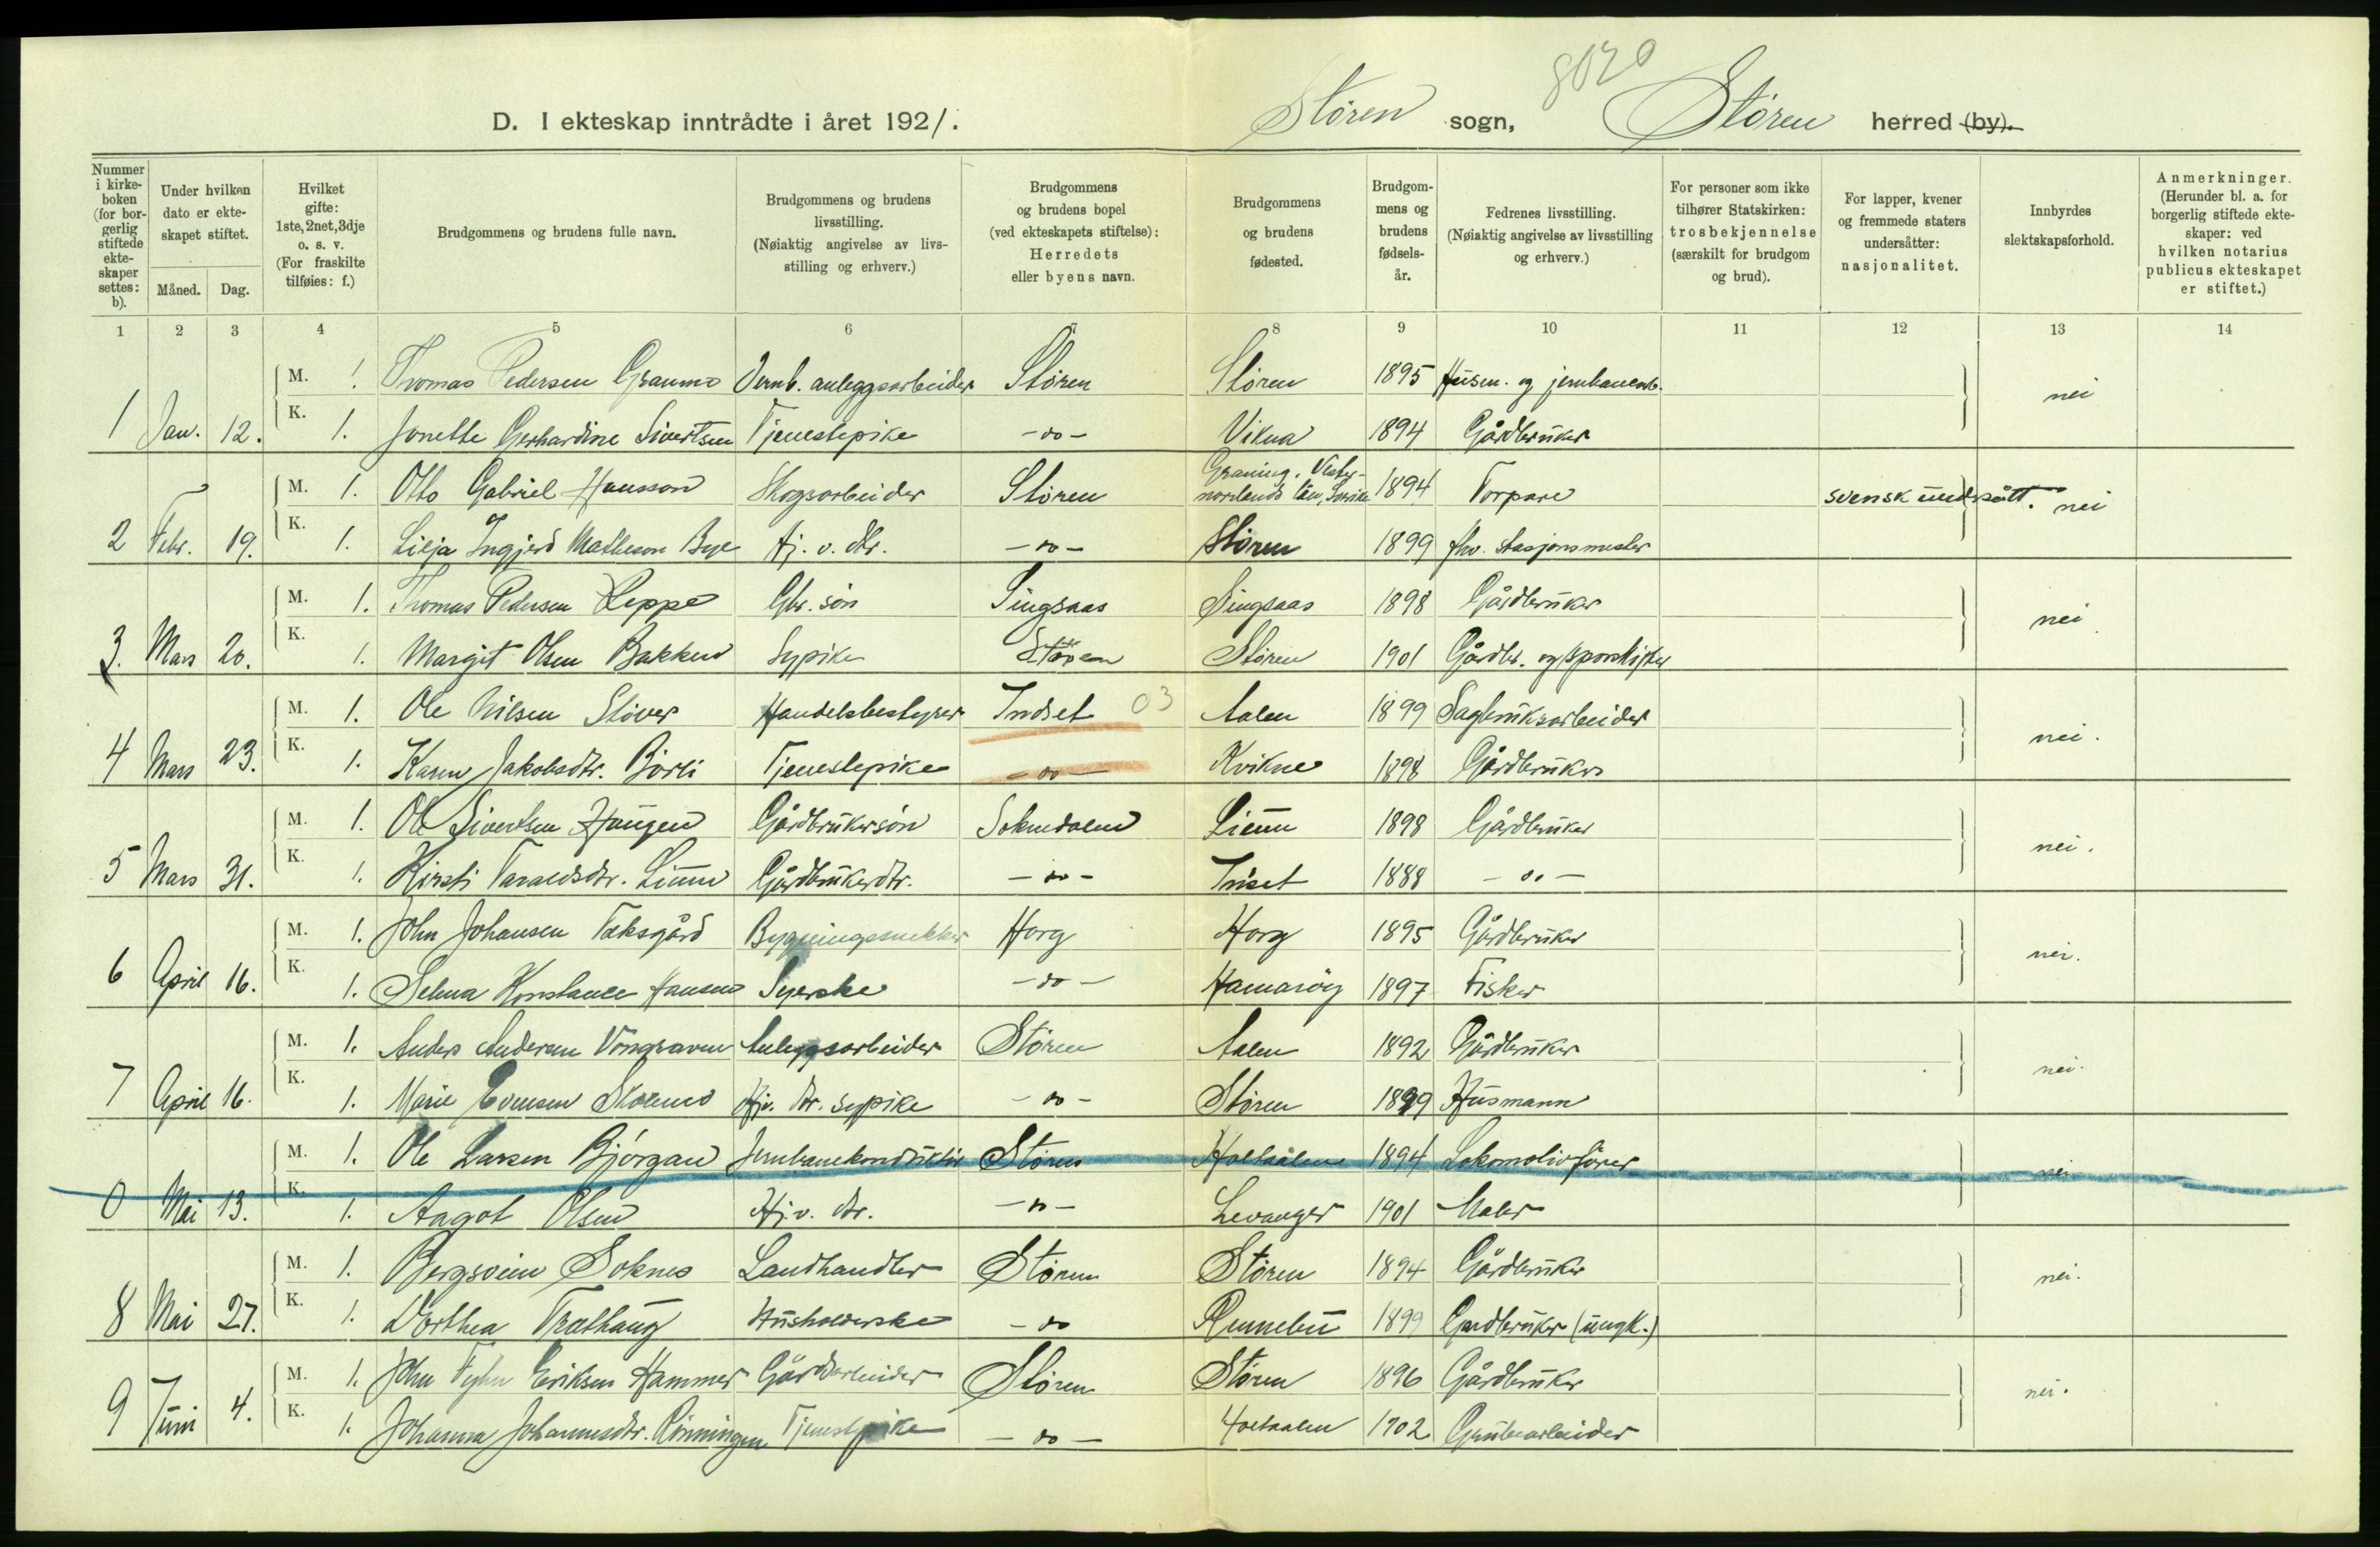 8020
D. I ekteskap inntrådte i året 1921. Støren sogn, Støren herred (by).
Nummer i kirkeboken (for borgerlig stiftede ekteskaper settes: b).
Under hvilken dato er ekteskapet stiftet.
Måned. Dag.
Hvilket gifte: 1ste, 2net, 3dje o. s. v. (For fraskilte tilføies: f.)
Brudgommens og brudens fulle navn.
Brudgommens og brudens livsstilling. (Nøiaktig angivelse av livsstilling og erhverv.)
Brudgommens og brudens bopel (ved ekteskapets stiftelse): Herredets eller byens navn.
Brudgommens og brudens fødested.
Brudgommens og brudens fødselsår.
Fedrenes livsstilling. (Nøiaktig angivelse av livsstilling og erhverv.)
For personer som ikke tilhører Statskirken: trosbekjennelse (særskilt for brudgom og brud).
For lapper, kvener og fremmede staters undersåtter: nasjonalitet.
Innbyrdes slektskapsforhold.
Anmerkninger. (Herunder bl. a. for borgerlig stiftede ekteskaper: ved hvilken notarius publicus ekteskapet er stiftet.)
1 2 3 4 5 6 7 8 9 10 11 12 13 14
M. 1. Thomas Pedersen Granmo Jernb. anleggsarbeider Støren Støren 1895 Husm. og jernbanearb. nei
1 Jan. 12. K. 1. Jonette Gerhardine Sivertsen Tjenestepike -do- Vikna 1894 Gårdbruker
M. 1. Otto Gabriel Hansson Skogsarbeider Støren Graning, Vesternorrlands län, Sverike 1894 Torpare svensk undersått. nei
2 Febr. 19. K. 1. Lilja Ingjerd Matheson Bye Hj. v. dtr. -do- Støren 1899 fhv. stasjonsmester
M. 1. Thomas Pedersen Reppe Gbr. søn Singsaas Singsaas 1898 Gårdbruker nei
3. Mars 20. K. 1. Margit Olsen Bakken Sypike Støren Støren 1901 Gårdbr. og sporskifter
M. 1. Ole Nilsen Støver Handelsbestyrer Indset 03 Aalen 1899 Sagbruksarbeider nei.
4 Mars 23. K. 1. Karen Jakobsdtr. Børli Tjenestepike -do- Kvikne 1898 Gårdbruker
M. 1. Ole Sivertsen Haugen Gårdbrukersøn Soknedalen 1898 Gårdbruker nei.
5 Mars 31. K. 1. Kirsti Taraldsdtr. Gårdbrukerdtr. -do- Inset 1888 -do-
M. 1. John Johansen Foksgård Bygningssnekker Horg Horg 1895 Gårdbruker nei.
6 April 16. K. 1. Selma Konstance Hansen Syerske -do- Hamarøy 1897 Fisker
M. 1. Anders Andersen Vongraven Anleggsarbeider Støren Aalen 1892 Gårdbruker nei.
7 April 16. K. 1. Marie Evensen Hj. v. dtr. sypike -do- Støren 1899 Husmann
M. 1. Ole Larsen Bjørgan Jernbanekonduktør Støren Holtaalen 1894 Lokomotivfører nei
0 Mai 13. K. 1. Aagot Olsen Hj. v. dtr. -do- Levanger 1901 Maler
M. 1. Bergsvein Soknes Landhandler Støren Støren 1894 Gårdbruker nei.
8 Mai 27. K. 1. Dorthea Træthaug Husholderske -do Rennebu 1899 Gardbruker (ungk.)
M. 1. John Fyhn Eriksen Hammer Gårdarbeider Støren Støren 1896 Gårdbruker nei.
9 Juni 4. K. 1. Johanna Johannesdtr. Rønningen Tjenestpike -do- Holtaalen 1902 Grubearbeider